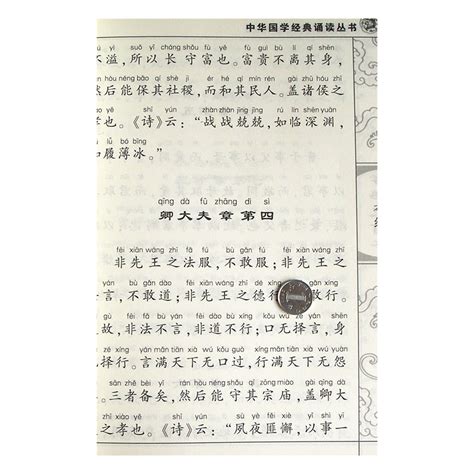 中华国学经典诵读丛书
yì suǒ yǐ cháng shǒu fù yě fù guì bù lí qí shēn
不溢，所以长守富也。富贵不离其身，
rán hòu néng bǎo qí shè jì ér hé qí mín rén gài zhū hóu zhī
然后能保其社稷，而和其民人。盖诸侯之
yě shī yún zhàn zhàn jīng jīng rú lín shēn yuān
也。《诗》云：“战战兢兢，如临深渊，
lǚ bó bīng
如履薄冰。”
qīng dà fū zhāng dì sì
卿大夫章第四
fēi xiān wáng zhī fǎ fú bù gǎn fú fēi xiān wáng zhī
非先王之法服，不敢服；非先王之
yán bù gǎn dào fēi xiān wáng zhī dé xíng bù gǎn xíng
言，不敢道；非先王之德行，不敢行。
gù fēi fǎ bù yán fēi dào bù xíng kǒu wú zé yán shēn
是故，非法不言，非道不行；口无择言，身
zé xíng yán mǎn tiān xià wú kǒu guò xíng mǎn tiān xià wú yuàn
择行。言满天下无口过，行满天下无怨
sān zhě bèi yǐ rán hòu néng shǒu qí zōng miào gài qīng dà
。三者备矣，然后能守其宗庙，盖卿大
zhī xiào yě shī yún sù yè fěi xiè yǐ shì yī
之孝也。《诗》云：“夙夜匪懈，以事一